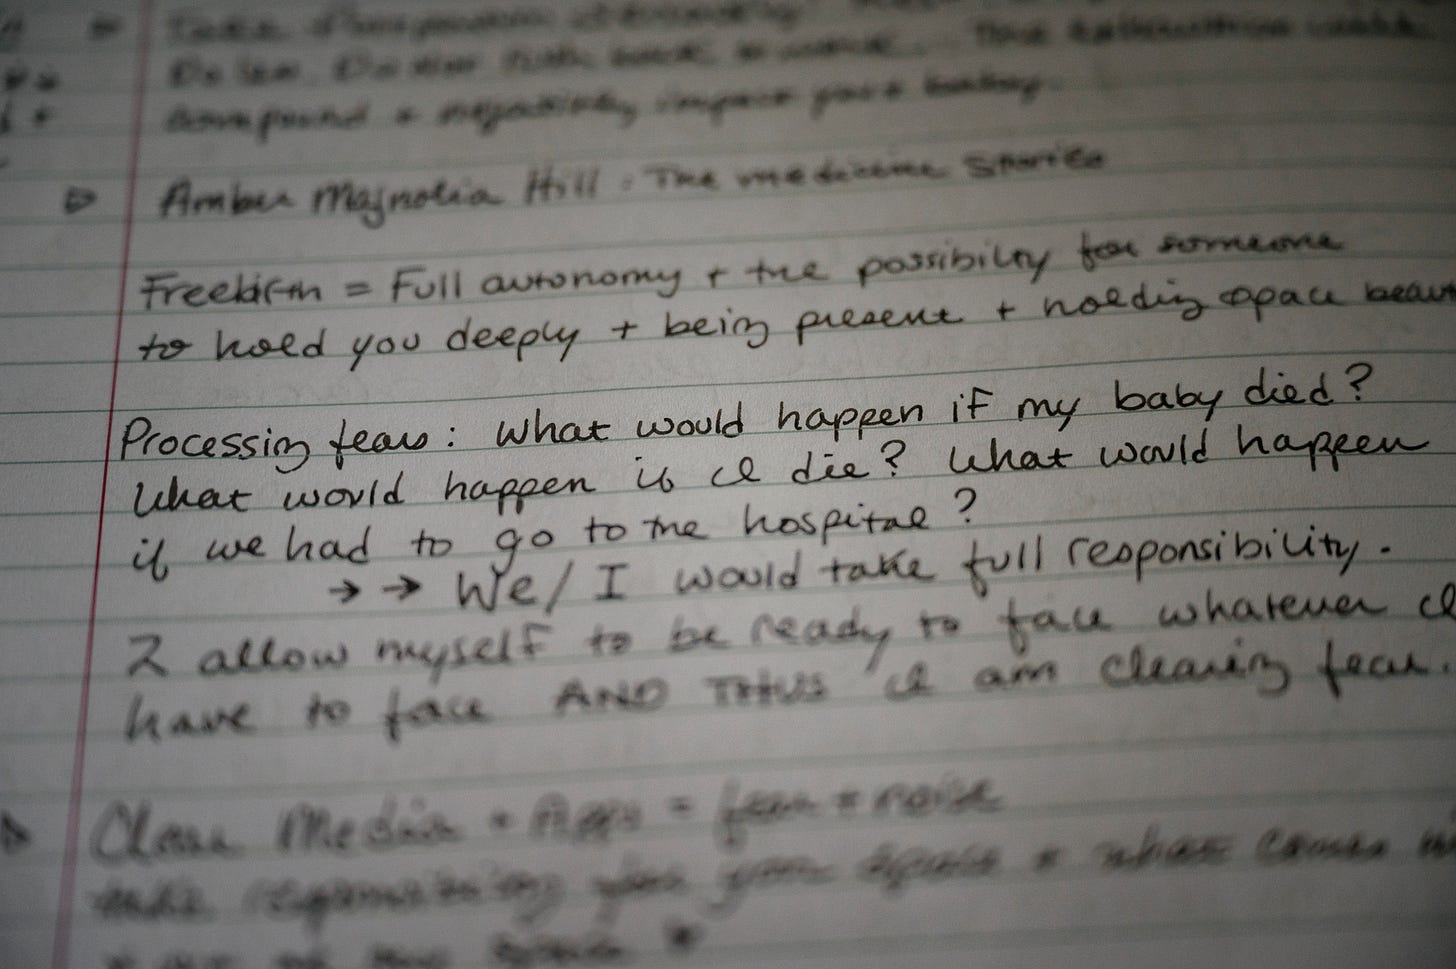 compound + negatively impact your
▷ Amber Magnolia Hill : The medicine Stories
Freebirth = Full autonomy + the possibility for someone
to hold you deeply + being present + holding space
Processing fears : What would happen if my baby died?
What would happen if I die? What would happen
if we had to go to the hospital?
→ → We/I would take full responsibility.
I allow myself to be ready to face whatever I
have to face AND THUS I am clearing fear.
Clear Media + Apps = fear + noise
take responsibility for your space + what comes